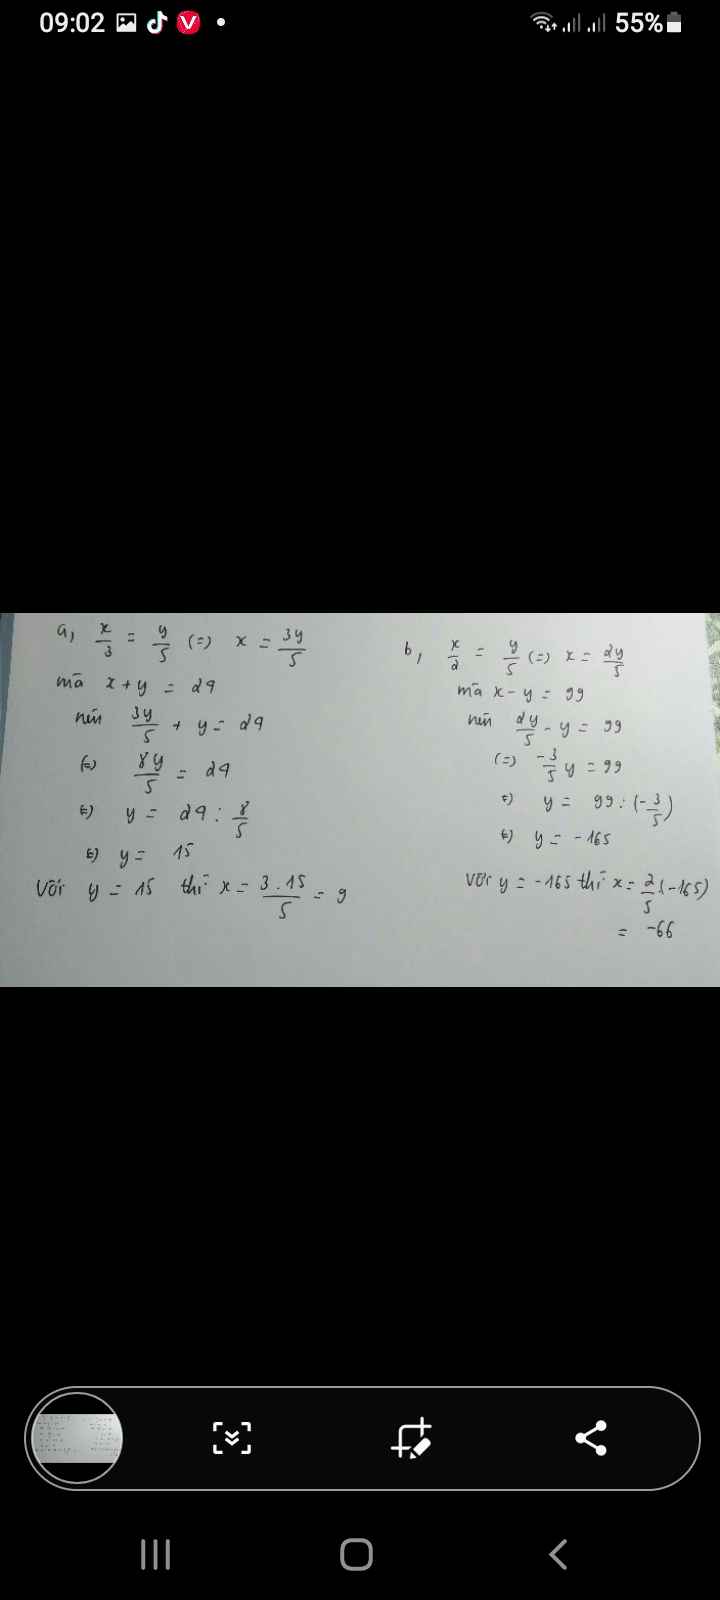 09:02
55%
a, x/3 = y/5 (=) x = 3y/5
mà x + y = 24
nên 3y/5 + y = 24
(=) 8y/5 = 24
(=) y = 24 : 8/5
(=) y = 15
Với y = 15 thì x = 3.15/5 = 9
b, x/2 = y/5 (=) x = 2y/5
mà x - y = 99
nên 2y/5 - y = 99
(=) -3/5 y = 99
(=) y = 99 : (-3/5)
(=) y = -165
Với y = -165 thì x = 2/5 . (-165)
= -66